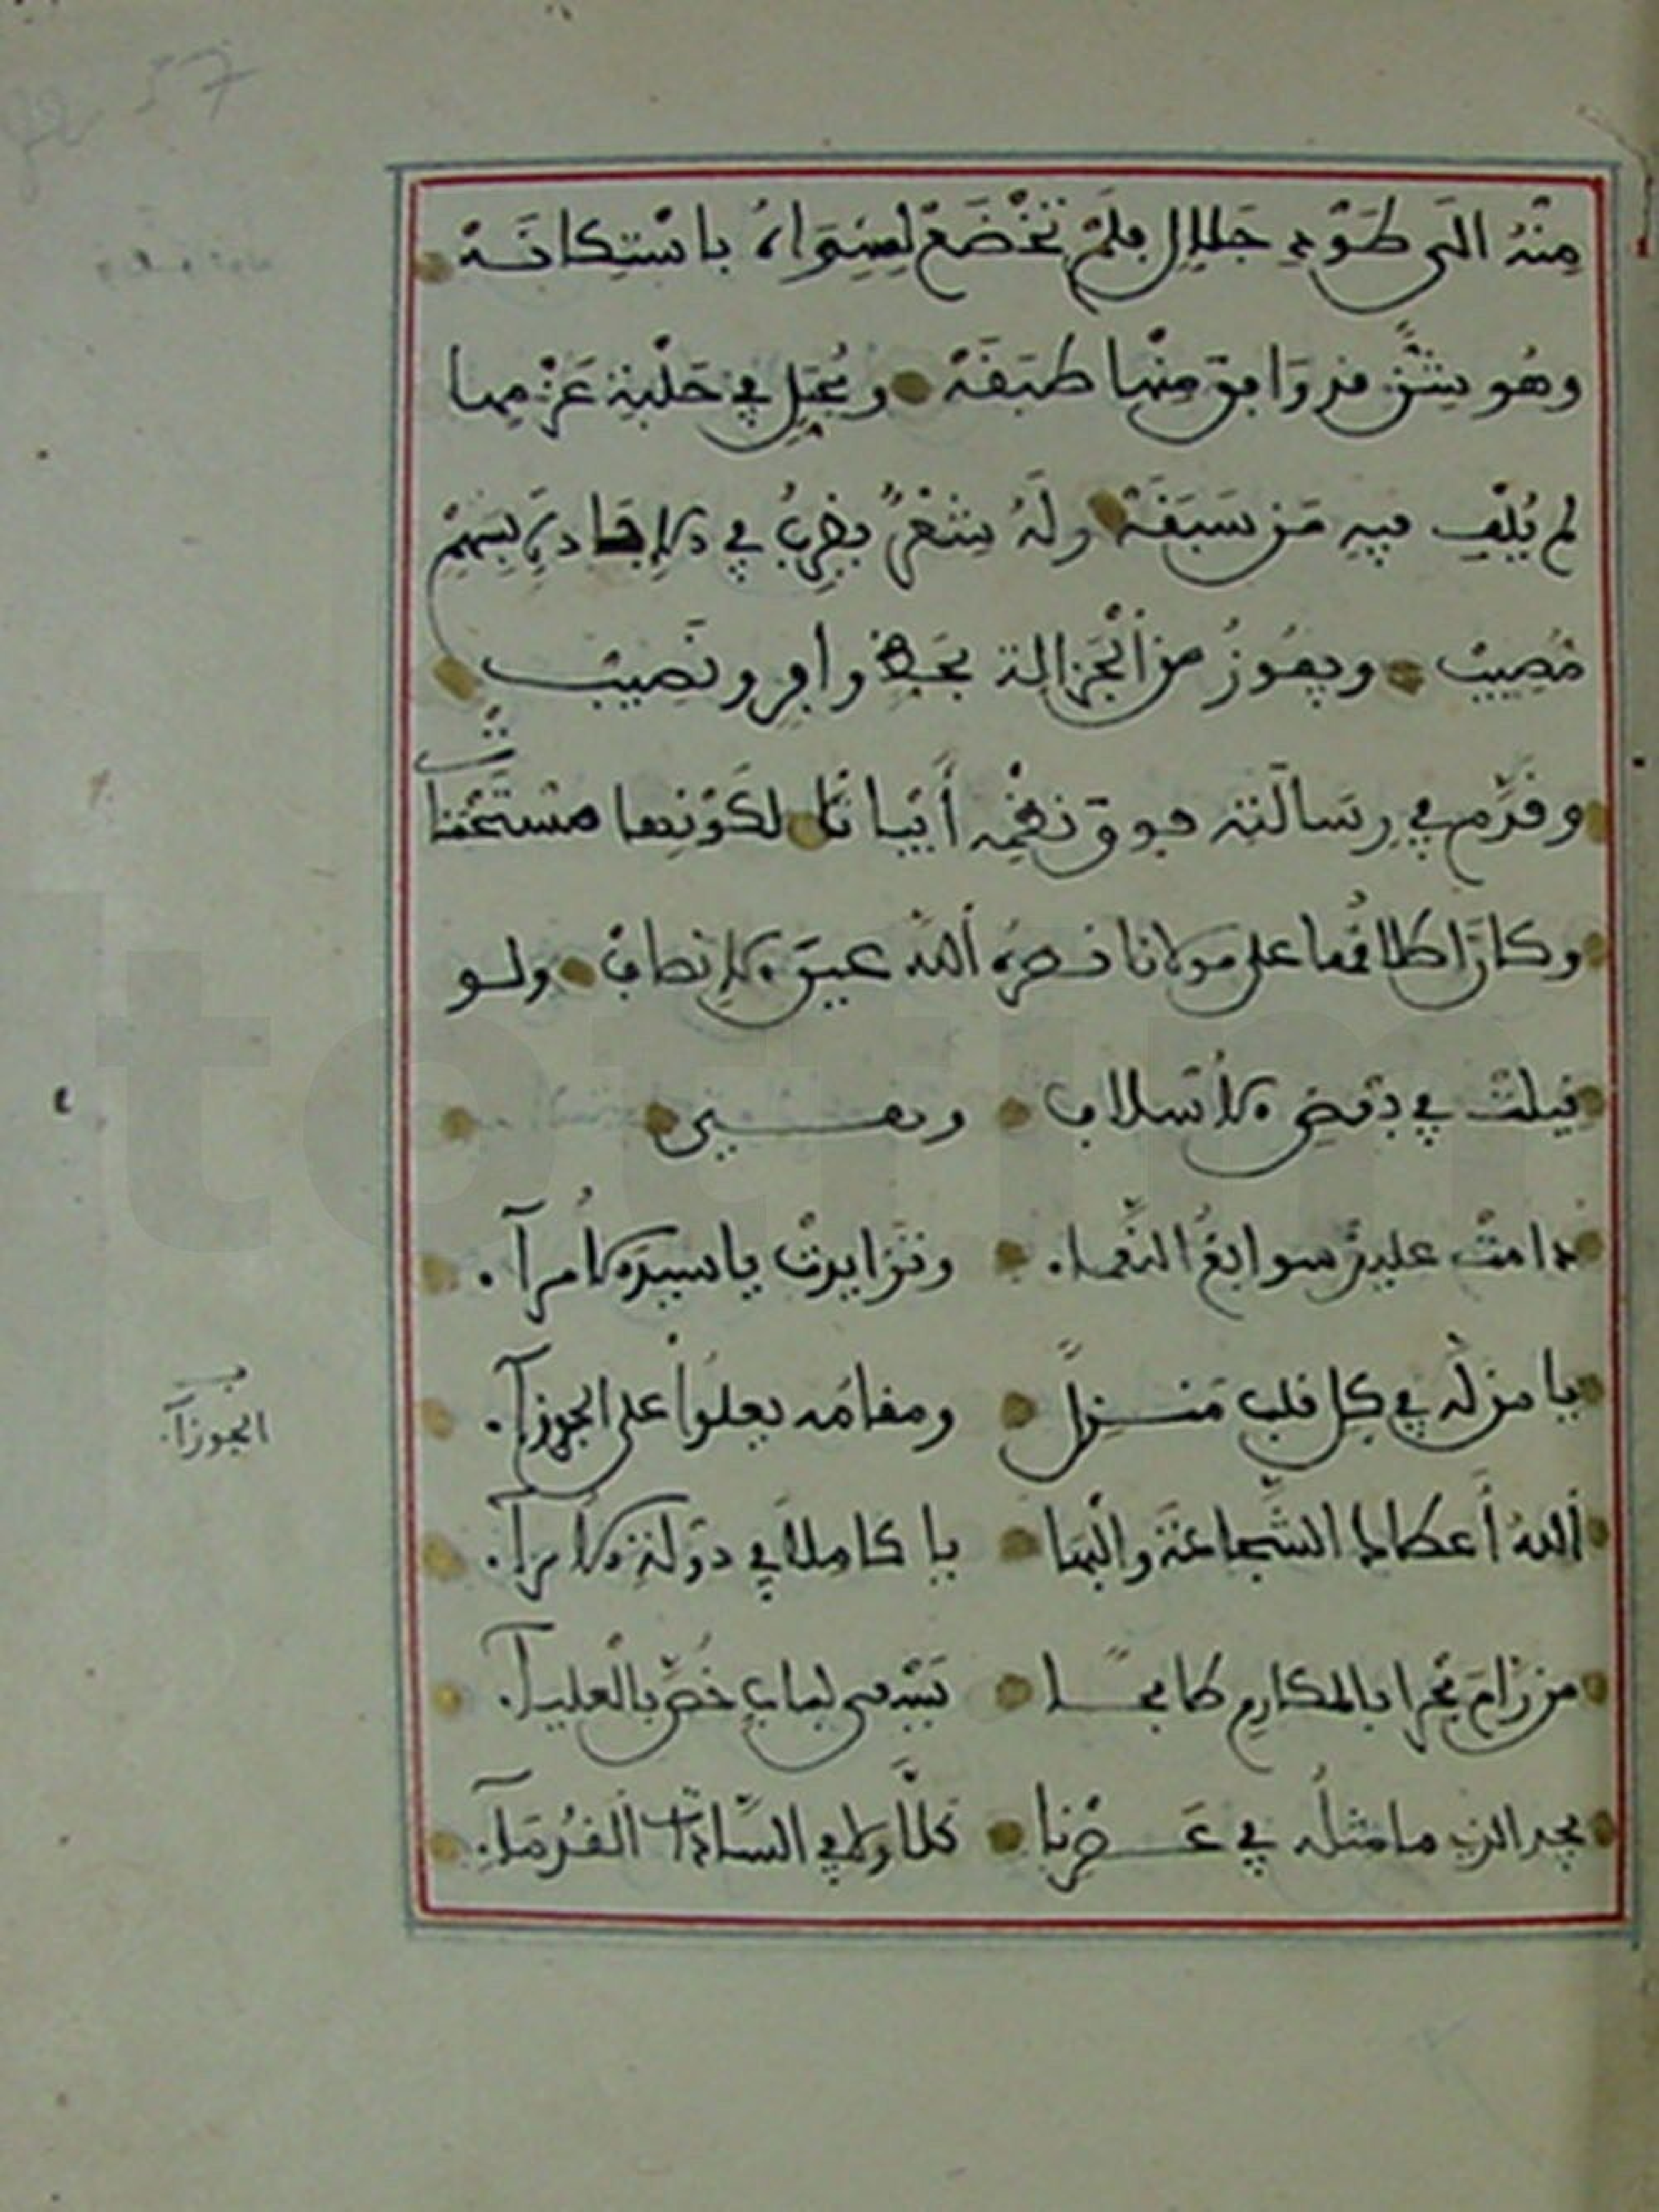 منه الى طود جلال فلم تخضع لسواه باستكانة
وهو يشن من وافق منها طبقة ويجيل في حلبة عزمها
لم يلف فيه من سبقه وله شعر يضرب في الاجادة بسهم
مصيب ويفوز من الجزالة بحظ وافر ونصيب
وقدم في رسالته فوق نظمه أبياتا لكونها مستحقة
وكان اطلاقها على مولانا نصره الله عين الانصاف ولو
قيلت في بعض الاسلاف وهي
دامت عليك سوابغ النعماء وتزايدت يا سيد الامرآء
يا من له في كل قلب منزل ومقامه يعلوا على الجوزآء
الله أعطاك الشجاعة والبها يا كاملا في دولة الامرآء
من رام فخرا بالمكارم طامحا يسعى لباب خص بالعليآء
مجد الذي ما مثله في عصرنا كلا ولا في السادة القدمآء
الجوزآء
57
totfim